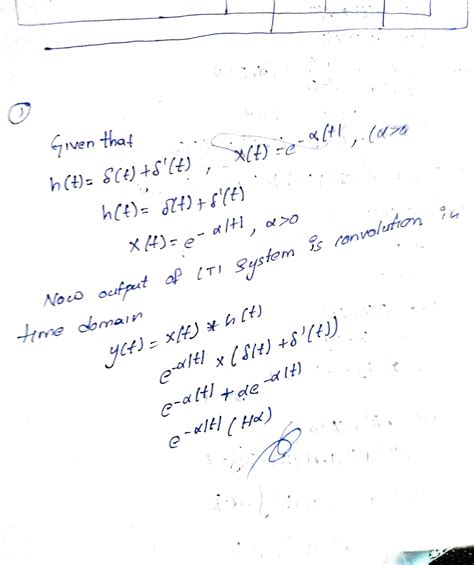 ①
Given that
h(t) = δ(t) + δ'(t) , x(t) = e^-α|t| , (α>0
h(t) = δ(t) + δ'(t)
x(t) = e^-α|t| , α>0
Now output of LTI system is convolution in
time domain
y(t) = x(t) * h(t)
e^-α|t| × (δ(t) + δ'(t))
e^-α|t| + αe^-α|t|
e^-α|t| (1+α)